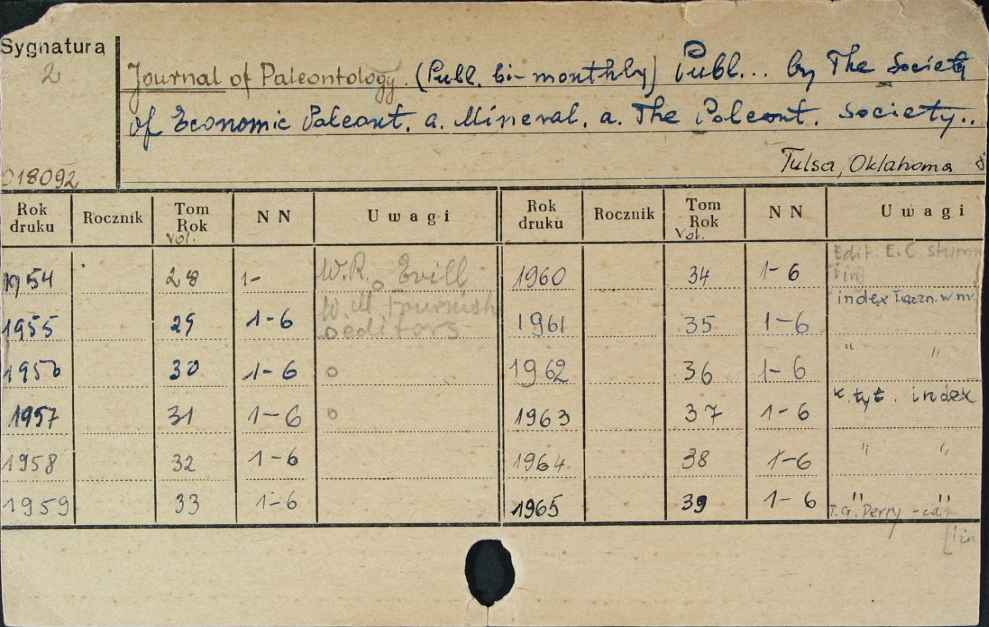 Sygnatura
2
Journal of Paleontology. (Publ. bi-monthly) Publ... by The Society
of Economic Paleont. a. Mineral. a. The Paleont. Society..
Tulsa, Oklahoma
018092
Rok druku Rocznik Tom Rok Vol. NN Uwagi Rok druku Rocznik Tom Rok Vol. NN Uwagi
1954 28 1- W.R. 1960 34 1-6 Edit. E.C.
1955 29 1-6 W.M. editors 1961 35 1-6 index
1956 30 1-6 o 1962 36 1-6 " "
1957 31 1-6 o 1963 37 1-6 k. tyt. index
1958 32 1-6 1964 38 1-6 " "
1959 33 1-6 1965 39 1-6 " "
T.G. Perry